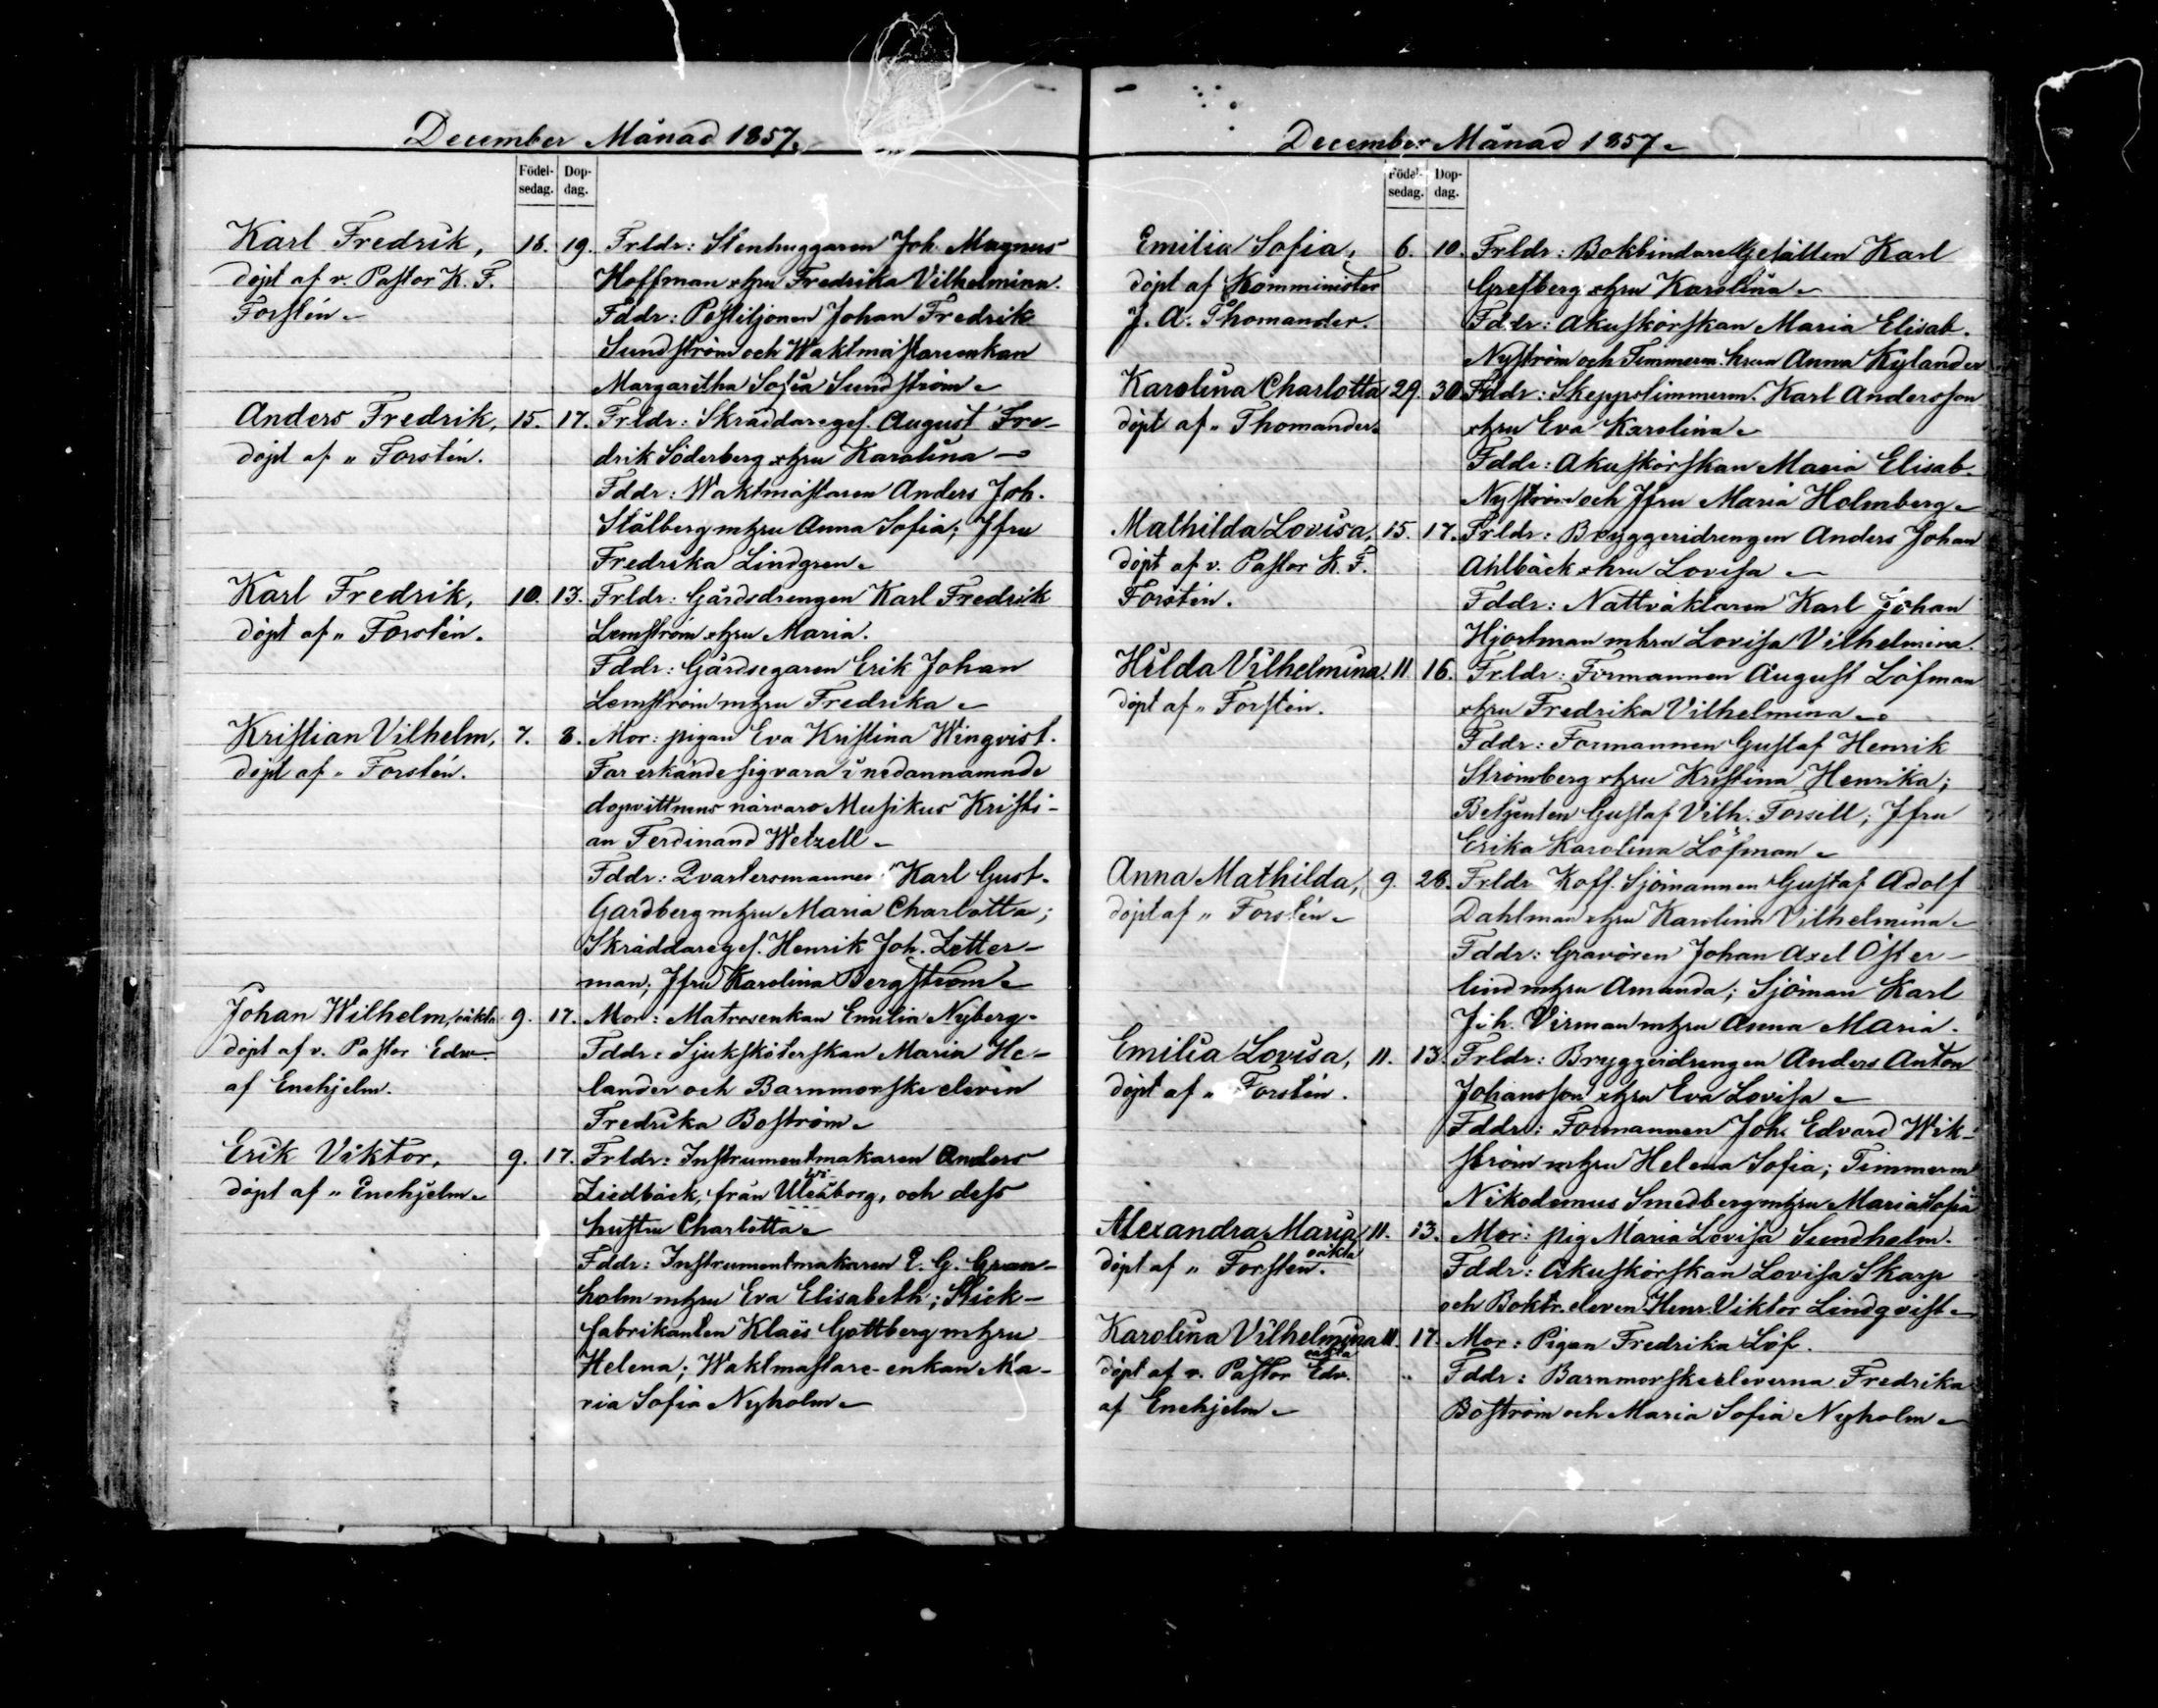 December Månad 1857.
Födel-
sedag.
Dop-
dag.
Karl Fredrik, 16. 19. Frldr: Stenhuggaren Joh. Magnus
döpt af v. Pastor K. F. Hoffman o hu Fredrika Vilhelmina.
Forstén. Fddr: Postiljonen Johan Fredrik
Sundström och Waktmästareenkan
Margaretha Sofia Sundström.
Anders Fredrik, 15. 17. Frldr: Skräddareges. August Fre-
döpt af " Forstén. drik Söderberg o hu Karolina
Fddr: Waktmästaren Anders Joh.
Stålberg m hu Anna Sofia; Jfru
Fredrika Lindgren.
Karl Fredrik, 10. 13. Frldr: Gårdsdrengen Karl Fredrik
döpt af " Forstén. Lemström o hu Maria.
Fddr: Gårdsegaren Erik Johan
Lemström m hu Fredrika.
Kristian Vilhelm, 7. 8. Mor: pigan Eva Kristina Wingvist.
döpt af " Forstén. Far erkände sig vara i nedannämnde
dopvittnens närvaro Musikus Kristi-
an Ferdinand Wetzell.
Fddr: Qvartersmannen Karl Gust.
Gardberg m hu Maria Charlotta;
Skräddareges. Henrik Joh. Zetter-
man; Jfru Karolina Bergström.
Johan Wilhelm, oäkta 9. 17. Mor: Matrosenkan Emilia Nyberg.
döpt af v. Pastor Edv. Fddr: Sjuksköterskan Maria He-
af Enehjelm. lander och Barnmorskeeleven
Fredrika Boström.
Erik Viktor, 9. 17. Frldr: Instrumentmakaren Anders
döpt af " Enehjelm. Liedbäck, från Uleåborg, och dess
hustru Charlotta.
Fddr: Instrumentmakaren E. G. Gran-
holm m hu Eva Elisabeth; Stick-
fabrikanten Klaës Gottberg m hu
Helena; Waktmästare-enkan Ma-
ria Sofia Nyholm.
December Månad 1857.
Födel-
sedag.
Dop-
dag.
Emilia Sofia, 6. 10. Frldr: Bokbindare Gesällen Karl
döpt af Komminister Grefberg o hu Karolina.
J. A. Thomander. Fddr: Akuskörskan Maria Elisab.
Nyström och Timmerm. hrun Anna Kylander
Karolina Charlotta 29. 30. Fddr: Skeppstimmerm. Karl Andersson
döpt af " Thomander. o hu Eva Karolina.
Fddr: Akuskörskan Maria Elisab.
Nyström och Jfru Maria Holmberg.
Mathilda Lovisa, 15. 17. Frldr: Bryggeridrengen Anders Johan
döpt af v. Pastor K. F. Ahlbäck o hu Lovisa
Forstén. Fddr: Nattväktaren Karl Johan
Hjortman m hu Lovisa Vilhelmina.
Hilda Vilhelmina, 11. 16. Frldr: Formannen August Löfman
döpt af " Forstén. o hu Fredrika Vilhelmina.
Fddr: Formannen Gustaf Henrik
Strömberg o hu Kristina Henrika;
Betjenten Gustaf Vilh. Forsell; Jfru
Erika Karolina Löfman.
Anna Mathilda, 9. 28. Frldr: Koff. Sjömannen Gustaf Adolf
döpt af " Forstén. Dahlman o hu Karolina Vilhelmina.
Fddr: Gravören Johan Axel Öster-
lind m hu Amanda; Sjöman Karl
Joh. Virman m hu Anna Maria.
Emilia Lovisa, 11. 13. Frldr: Bryggeridrengen Anders Anton
döpt af " Forstén. Johansson o hu Eva Lovisa
Fddr: Formannen Joh. Edvard Wik-
ström m hu Helena Sofia; Timmerm
Nikodemus Smedberg m hu Maria Sofia
Alexandra Maria, oäkta 11. 13. Mor: pig Maria Lovisa Sundholm.
döpt af " Forstén. Fddr: Akuskörskan Lovisa Skarp
och Boktr. eleven Henr. Viktor Lindqvist.
Karolina Vilhelmina oäkta 11. 17. Mor: Pigan Fredrika Löf.
döpt af v. Pastor Edv. Fddr: Barnmorskeeleverna Fredrika
af Enehjelm. Boström och Maria Sofia Nyholm.